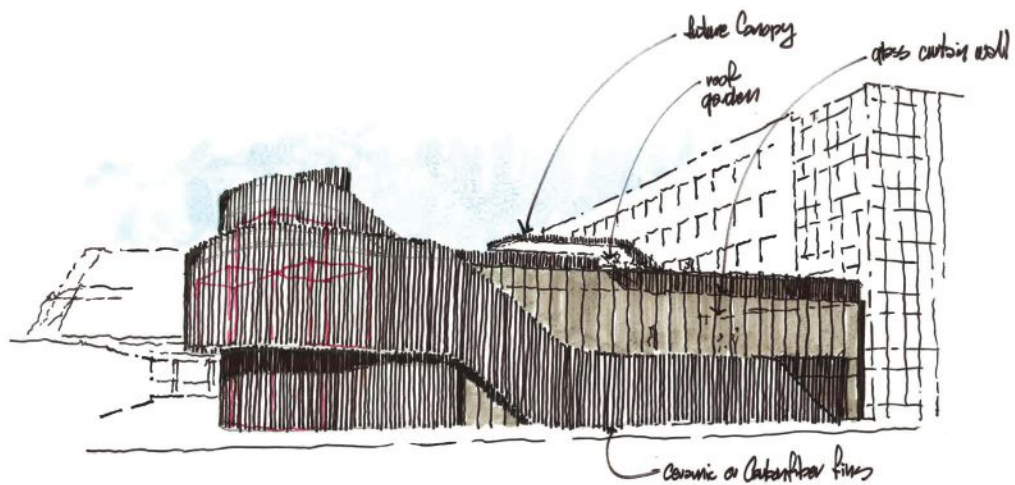 future Canopy
roof
garden
glass curtain wall
ceramic or Carbonfiber fins